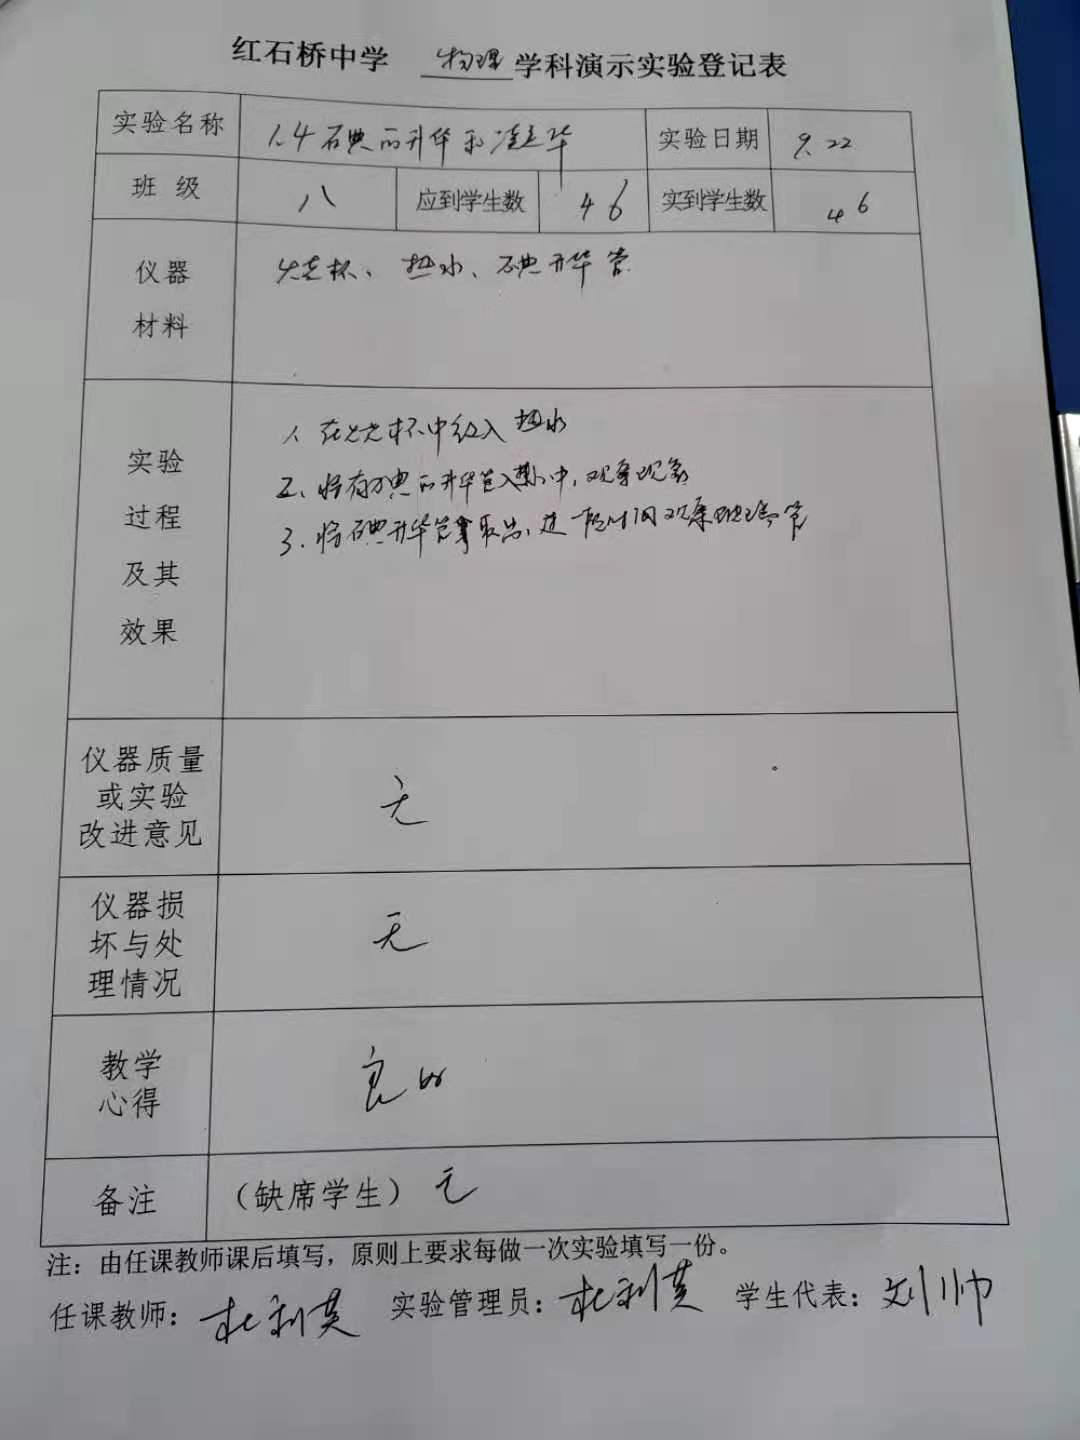 红石桥中学 物理 学科演示实验登记表
实验名称 1.4 碘的升华和凝华 实验日期 9.22
班 级 八 应到学生数 46 实到学生数 46
仪器
材料
烧杯、热水、碘升华管
实验
过程
及其
效果
1、在烧杯中倒入热水
2、将有碘的升华管入热水中,观察现象
3、将碘升华管拿取出,过一段时间观察 管
仪器质量
或实验
改进意见
无
仪器损
坏与处
理情况
无
教学
心得
良好
备注 (缺席学生) 无
注:由任课教师课后填写,原则上要求每做一次实验填写一份。
任课教师:杜利英 实验管理员:杜利英 学生代表:刘帅